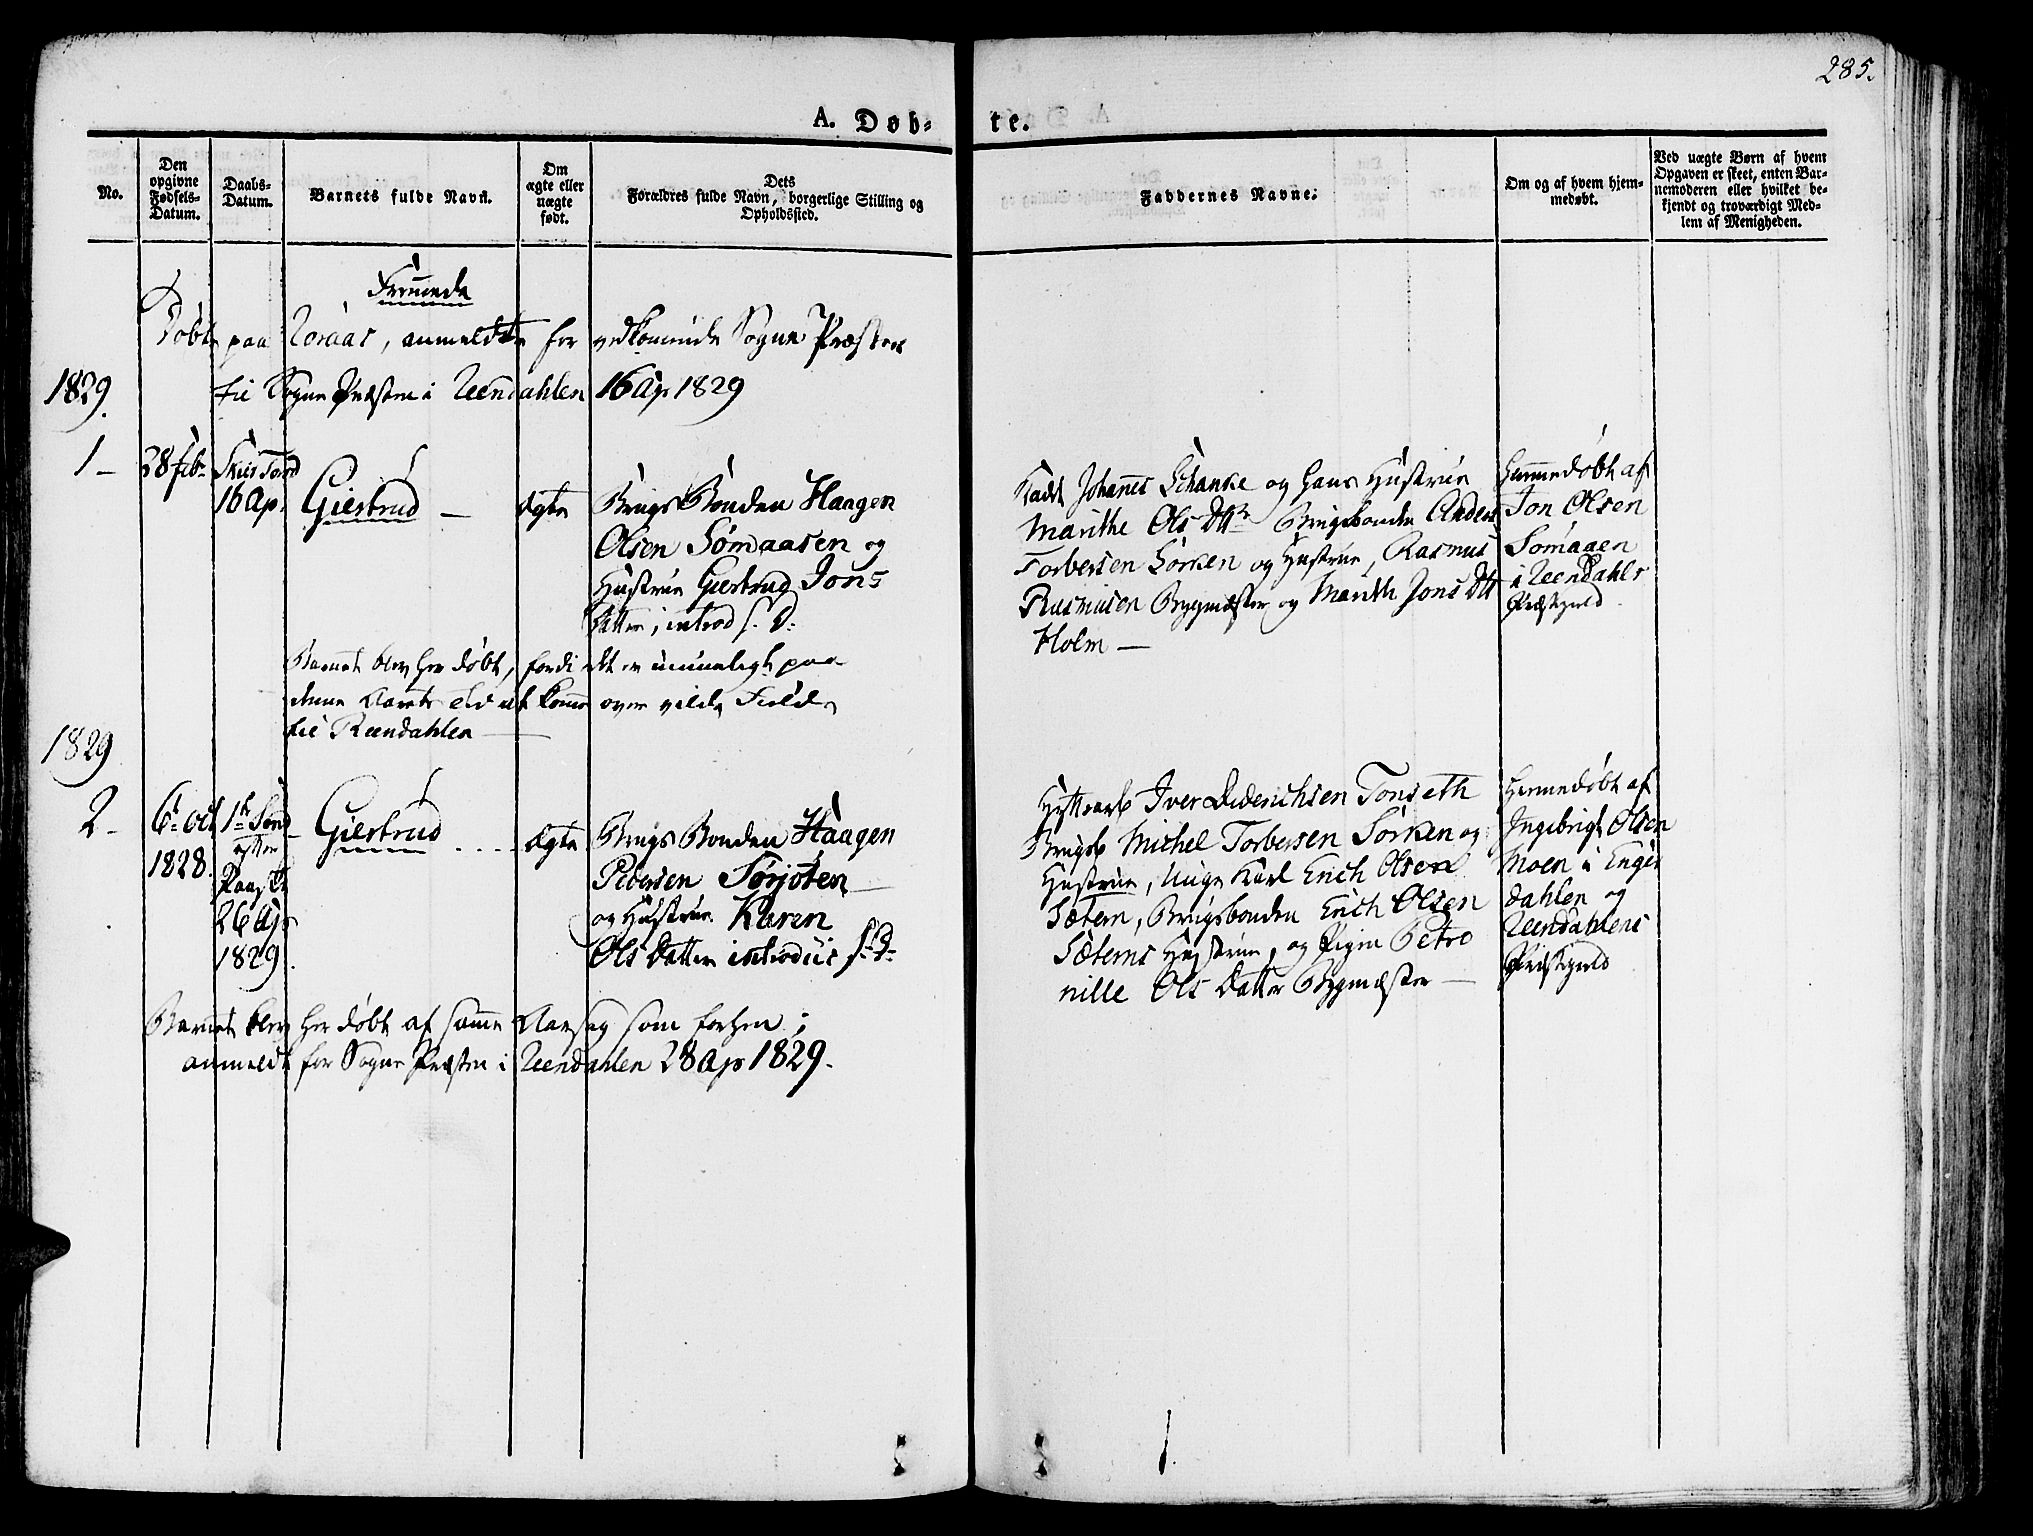 285.
A. Døb-
te.
No.
Den
opgivne
Fødsels-
Datum.
Daabs-
Datum.
Barnets fulde Navn.
Om
ægte eller
uægte
født.
Dets
Forældres fulde Navn, borgerlige Stilling og
Opholdssted.
Faddernes Navne.
Om og af hvem hjem-
medøbt.
Ved uægte Børn af hvem
Opgaven er skeet, enten Bar-
nemoderen eller hvilket be-
kjendt og troværdigt Med-
lem af Menigheden.
Fremmede
Døbte paa Roraas, anmeldte for vedkommende Sogne Præster
1829.
til Sogne Præsten i Reendahlen 16 Ap 1829
1 -
28 Feb.
Skiis Torsd
16 Ap.
Giertrud —
ægte
Brugs Bonden Haagen
Olsen Sømaasen og
Hustrue Giertrud Jons
Datter, introd s. D.
Fadd. Johannes Schanke og hans Hustrue
Marithe Ols Dttr Brugsbonden Anders
Torbersen Sorken og Hustrue, Rasmus
Rasmusen Bygmæster og Marith Jons Dtt
Holm —
Hiemmedøbt af
Jon Olsen
Sømaaen
i Reendahls
Præstgield.
Barnet blev her døbt, fordi det er umueligt paa
denne Aarets Tid at komme over vilde Field
til Reendahlen
1829
2 -
6 Oct
1828.
1te Sønd
efter
Paaske
26 Ap
1829.
Giertrud
ægte
Brugs Bonden Haagen
Pedersen Sørjoten
og Hustrue Karen
Ols Datter introduc s. D.
Hyttearb Iver Diderichsen Tonseth
Brugsb Michel Torbersen Sorken og
Hustrue, Unge Karl Erich Olsen
Sætern, Brugsbonden Erich Olsen
Sæterns Hustrue, og Pigen Petro
nille Ols Datter Bygmæster —
Hiemmedøbt af
Ingebrigt Olsen
Moen i Enger
dahlen og
Reendahlens
Præstgield
Barnet blev her døbt af samme Aarsag som forhen;
anmeldt for Sogne Præsten i Reendahlen 28 Ap 1829.